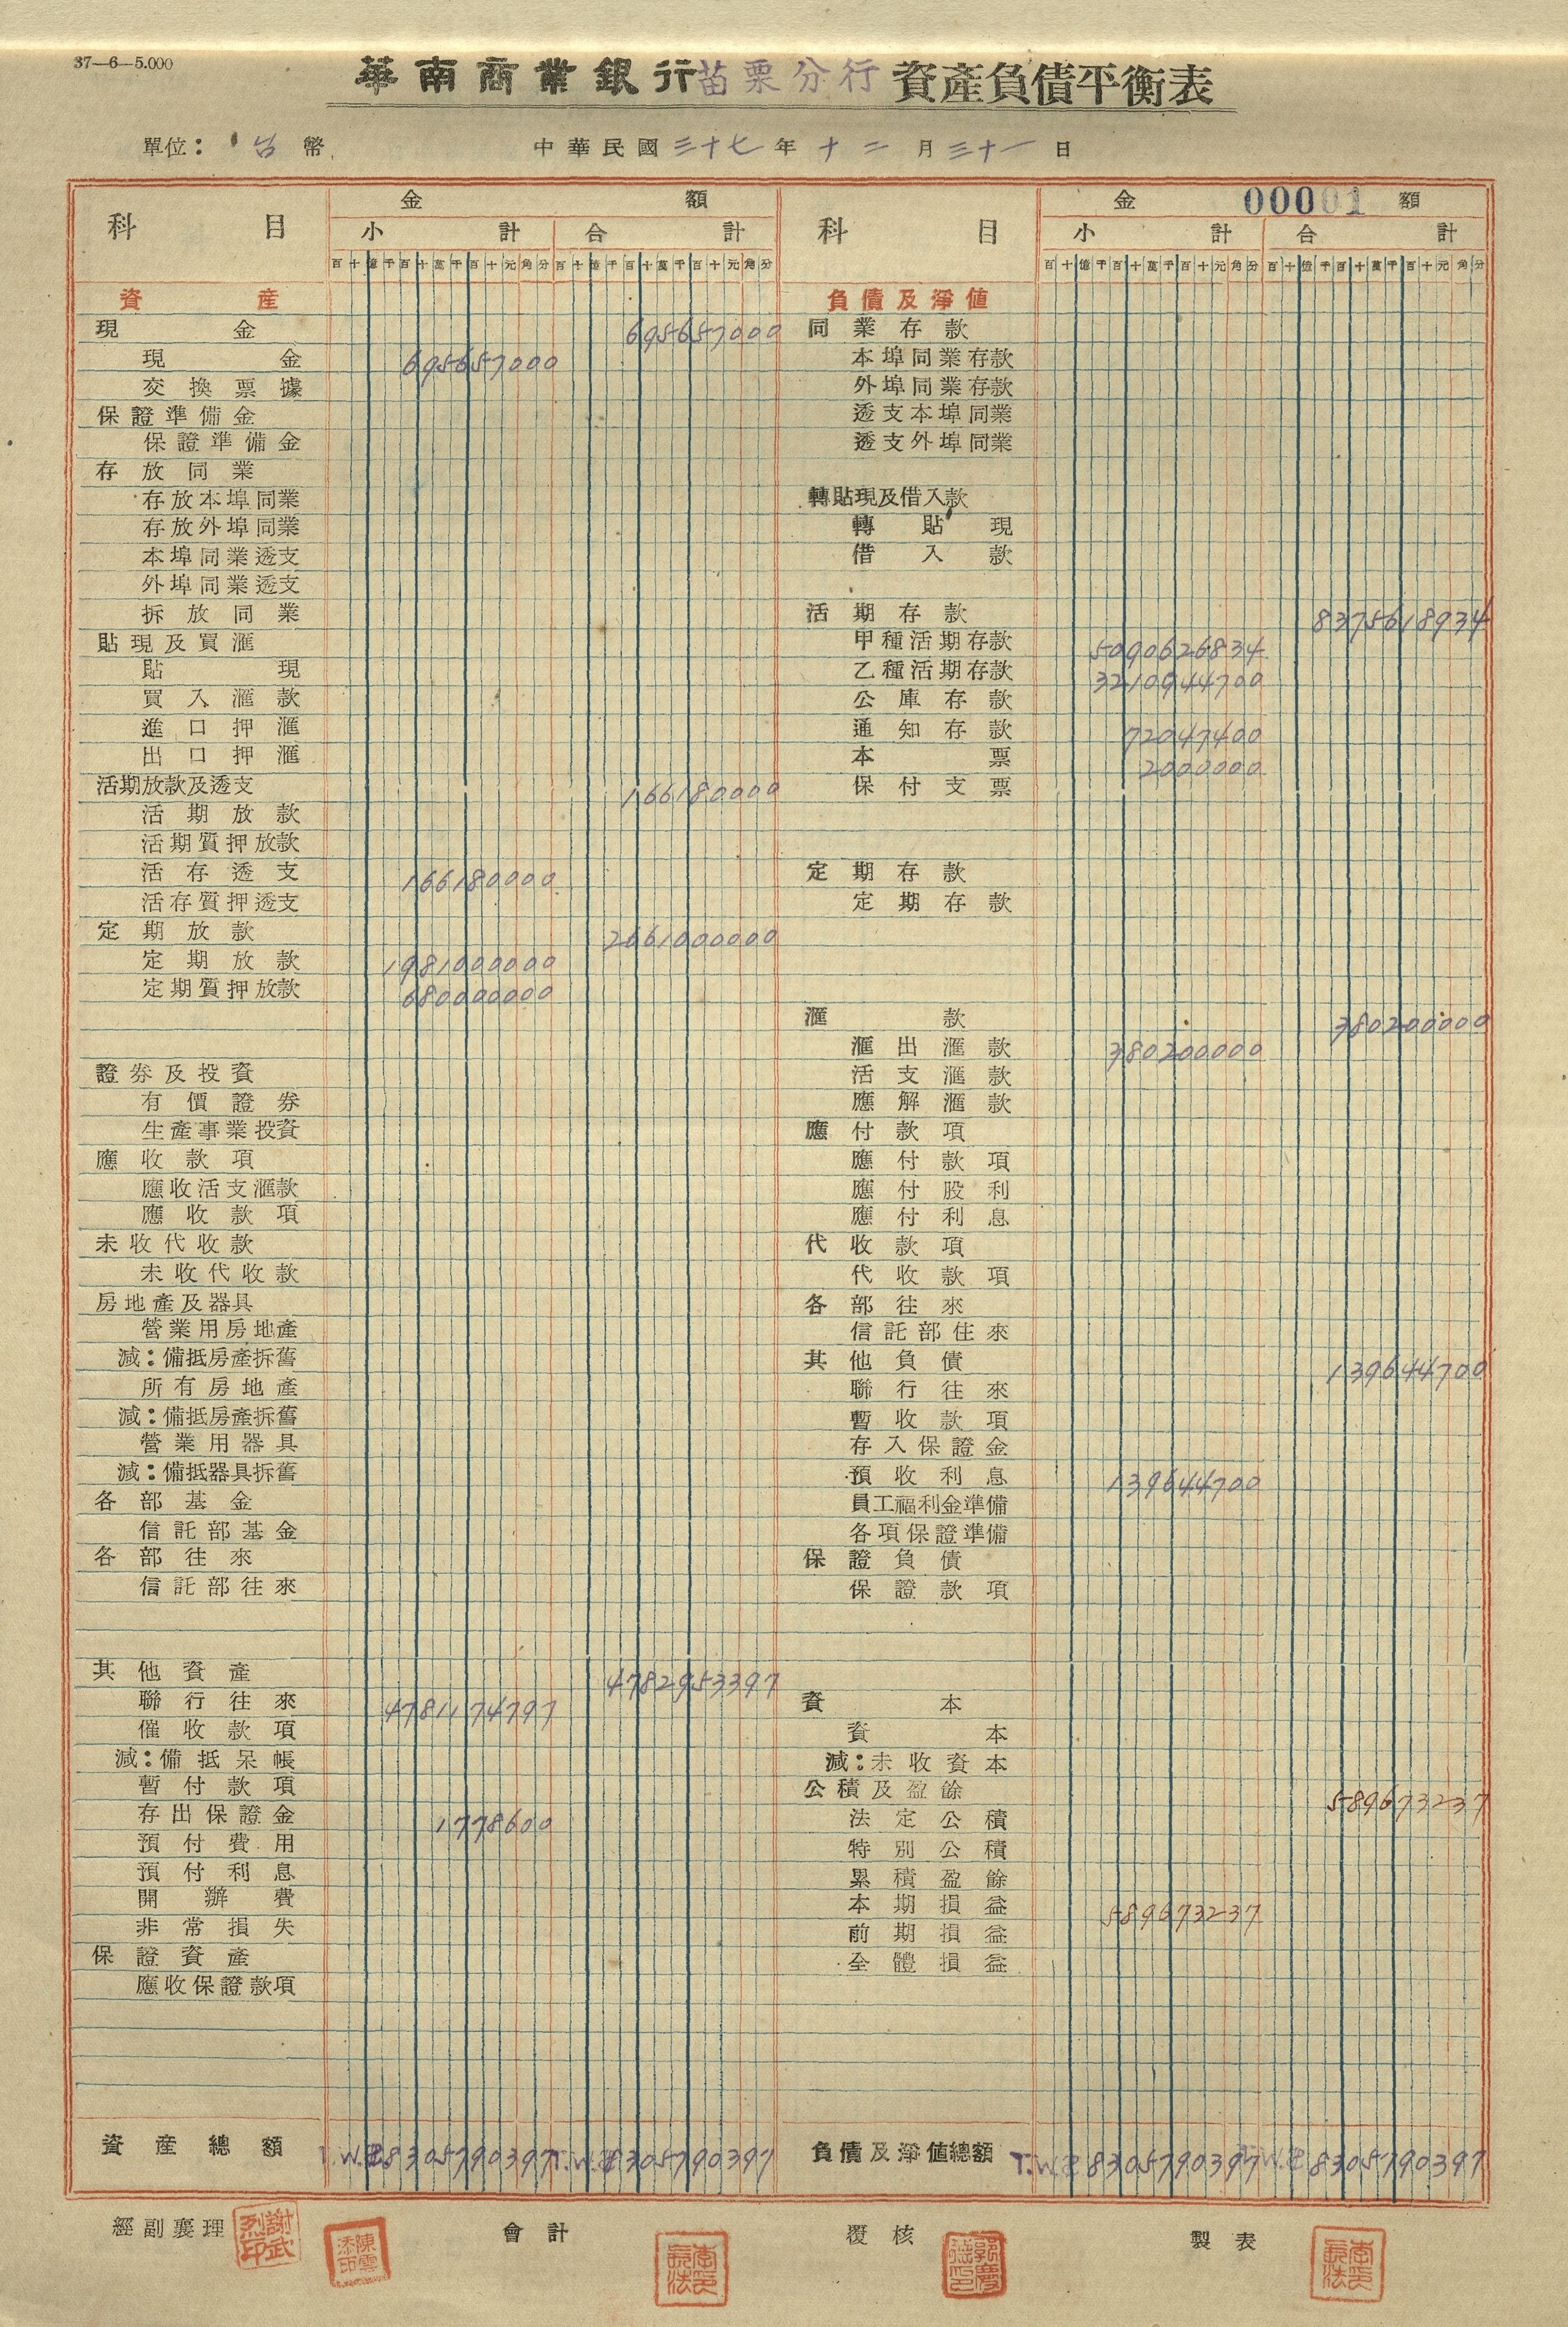 37—6—5.000
華南商業銀行苗栗分行資產負債平衡表
單位：台幣
中華民國三十七年十二月三十一日
00001
科目 金額
小計 合計
百十億千百十萬千百十元角分 百十億千百十萬千百十元角分
資產
現金 695657000
現金 695657000
交換票據
保證準備金
保證準備金
存放同業
存放本埠同業
存放外埠同業
本埠同業透支
外埠同業透支
拆放同業
貼現及買滙
貼現
買入滙款
進口押滙
出口押滙
活期放款及透支 166180000
活期放款
活期質押放款
活存透支 166180000
活存質押透支
定期放款 2661000000
定期放款 1981000000
定期質押放款 680000000
證券及投資
有價證券
生產事業投資
應收款項
應收活支滙款
應收款項
未收代收款
未收代收款
房地產及器具
營業用房地產
減：備抵房產拆舊
所有房地產
減：備抵房產拆舊
營業用器具
減：備抵器具拆舊
各部基金
信託部基金
各部往來
信託部往來
其他資產 4782953397
聯行往來 4781174797
催收款項
減：備抵呆帳
暫付款項
存出保證金 1778600
預付費用
預付利息
開辦費
非常損失
保證資產
應收保證款項
資產總額 T.W.$8305790397 T.W.$8305790397
科目 金額
小計 合計
百十億千百十萬千百十元角分 百十億千百十萬千百十元角分
負債及淨值
同業存款
本埠同業存款
外埠同業存款
透支本埠同業
透支外埠同業
轉貼現及借入款
轉貼現
借入款
活期存款 8375618934
甲種活期存款 5090626834
乙種活期存款 3210944700
公庫存款
通知存款 72047400
本票 2000000
保付支票
定期存款
定期存款
滙款 380200000
滙出滙款 380200000
活支滙款
應解滙款
應付款項
應付款項
應付股利
應付利息
代收款項
代收款項
各部往來
信託部往來
其他負債 139644700
聯行往來
暫收款項
存入保證金
預收利息 139644700
員工福利金準備
各項保證準備
保證負債
保證款項
資本
資本
減：未收資本
公積及盈餘 589673237
法定公積
特別公積
累積盈餘
本期損益 589673237
前期損益
全體損益
負債及淨值總額 T.W.$8305790397 T.W.$8305790397
經副襄理 謝武烈印 陳雲添印 會計 覆核 製表